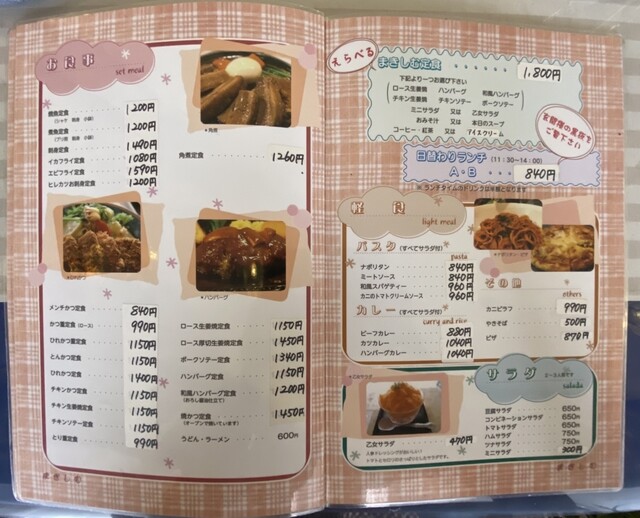 お食事
set meal
煮魚定食
1200円
煮魚定食
1200円
刺身定食
1490円
イカフライ定食
1080円
エビフライ定食
1590円
ヒレカツお刺身定食
1200円
★角煮
角煮定食
1260円
★ハンバーグ
メンチかつ定食
840円
かつ重定食(ロース)
990円
ひれかつ重定食
1150円
とんかつ定食
1150円
ひれかつ定食
1400円
チキンかつ定食
1150円
チキン生姜焼定食
1150円
チキンソテー定食
1150円
とり重定食
990円
ロース生姜焼定食
1150円
ロース厚切生姜焼定食
1450円
ポークソテー定食
1340円
ハンバーグ定食
1150円
和風ハンバーグ定食
1200円
(おろし醤油仕立て)
焼かつ定食
1450円
(オーブンで焼いています)
うどん・ラーメン
600円
まきしむ
えらべる
まきしむ定食
1,800円
下記より一つお選び下さい
ロース生姜焼 ハンバーグ 和風ハンバーグ
チキン生姜焼 チキンソテー ポークソテー
ミニサラダ 又は 乙女サラダ
おみそ汁 又は 本日のスープ
コーヒー・紅茶 又は アイスクリーム
玄関横の黒板を
ご覧下さい
日替わりランチ (11:30~14:00)
A・B
840円
※ランチタイムのドリンクは半額となります
軽食
light meal
パスタ (すべてサラダ付)
pasta
ナポリタン
840円
ミートソース
840円
和風スパゲティー
960円
カニのトマトクリームソース
960円
カレー (すべてサラダ付)
curry and rice
ビーフカレー
880円
カツカレー
1040円
ハンバーグカレー
1040円
その他
others
カニピラフ
990円
やきそば
500円
ピザ
870円
サラダ
salada
豆腐サラダ
650円
コンビネーションサラダ
650円
トマトサラダ
650円
ハムサラダ
750円
ツナサラダ
750円
ミニサラダ
300円
★乙女サラダ
乙女サラダ
470円
人参ドレッシングがおいしい!
トマトと大根のさっぱりとしたサラダです。
まきしむ